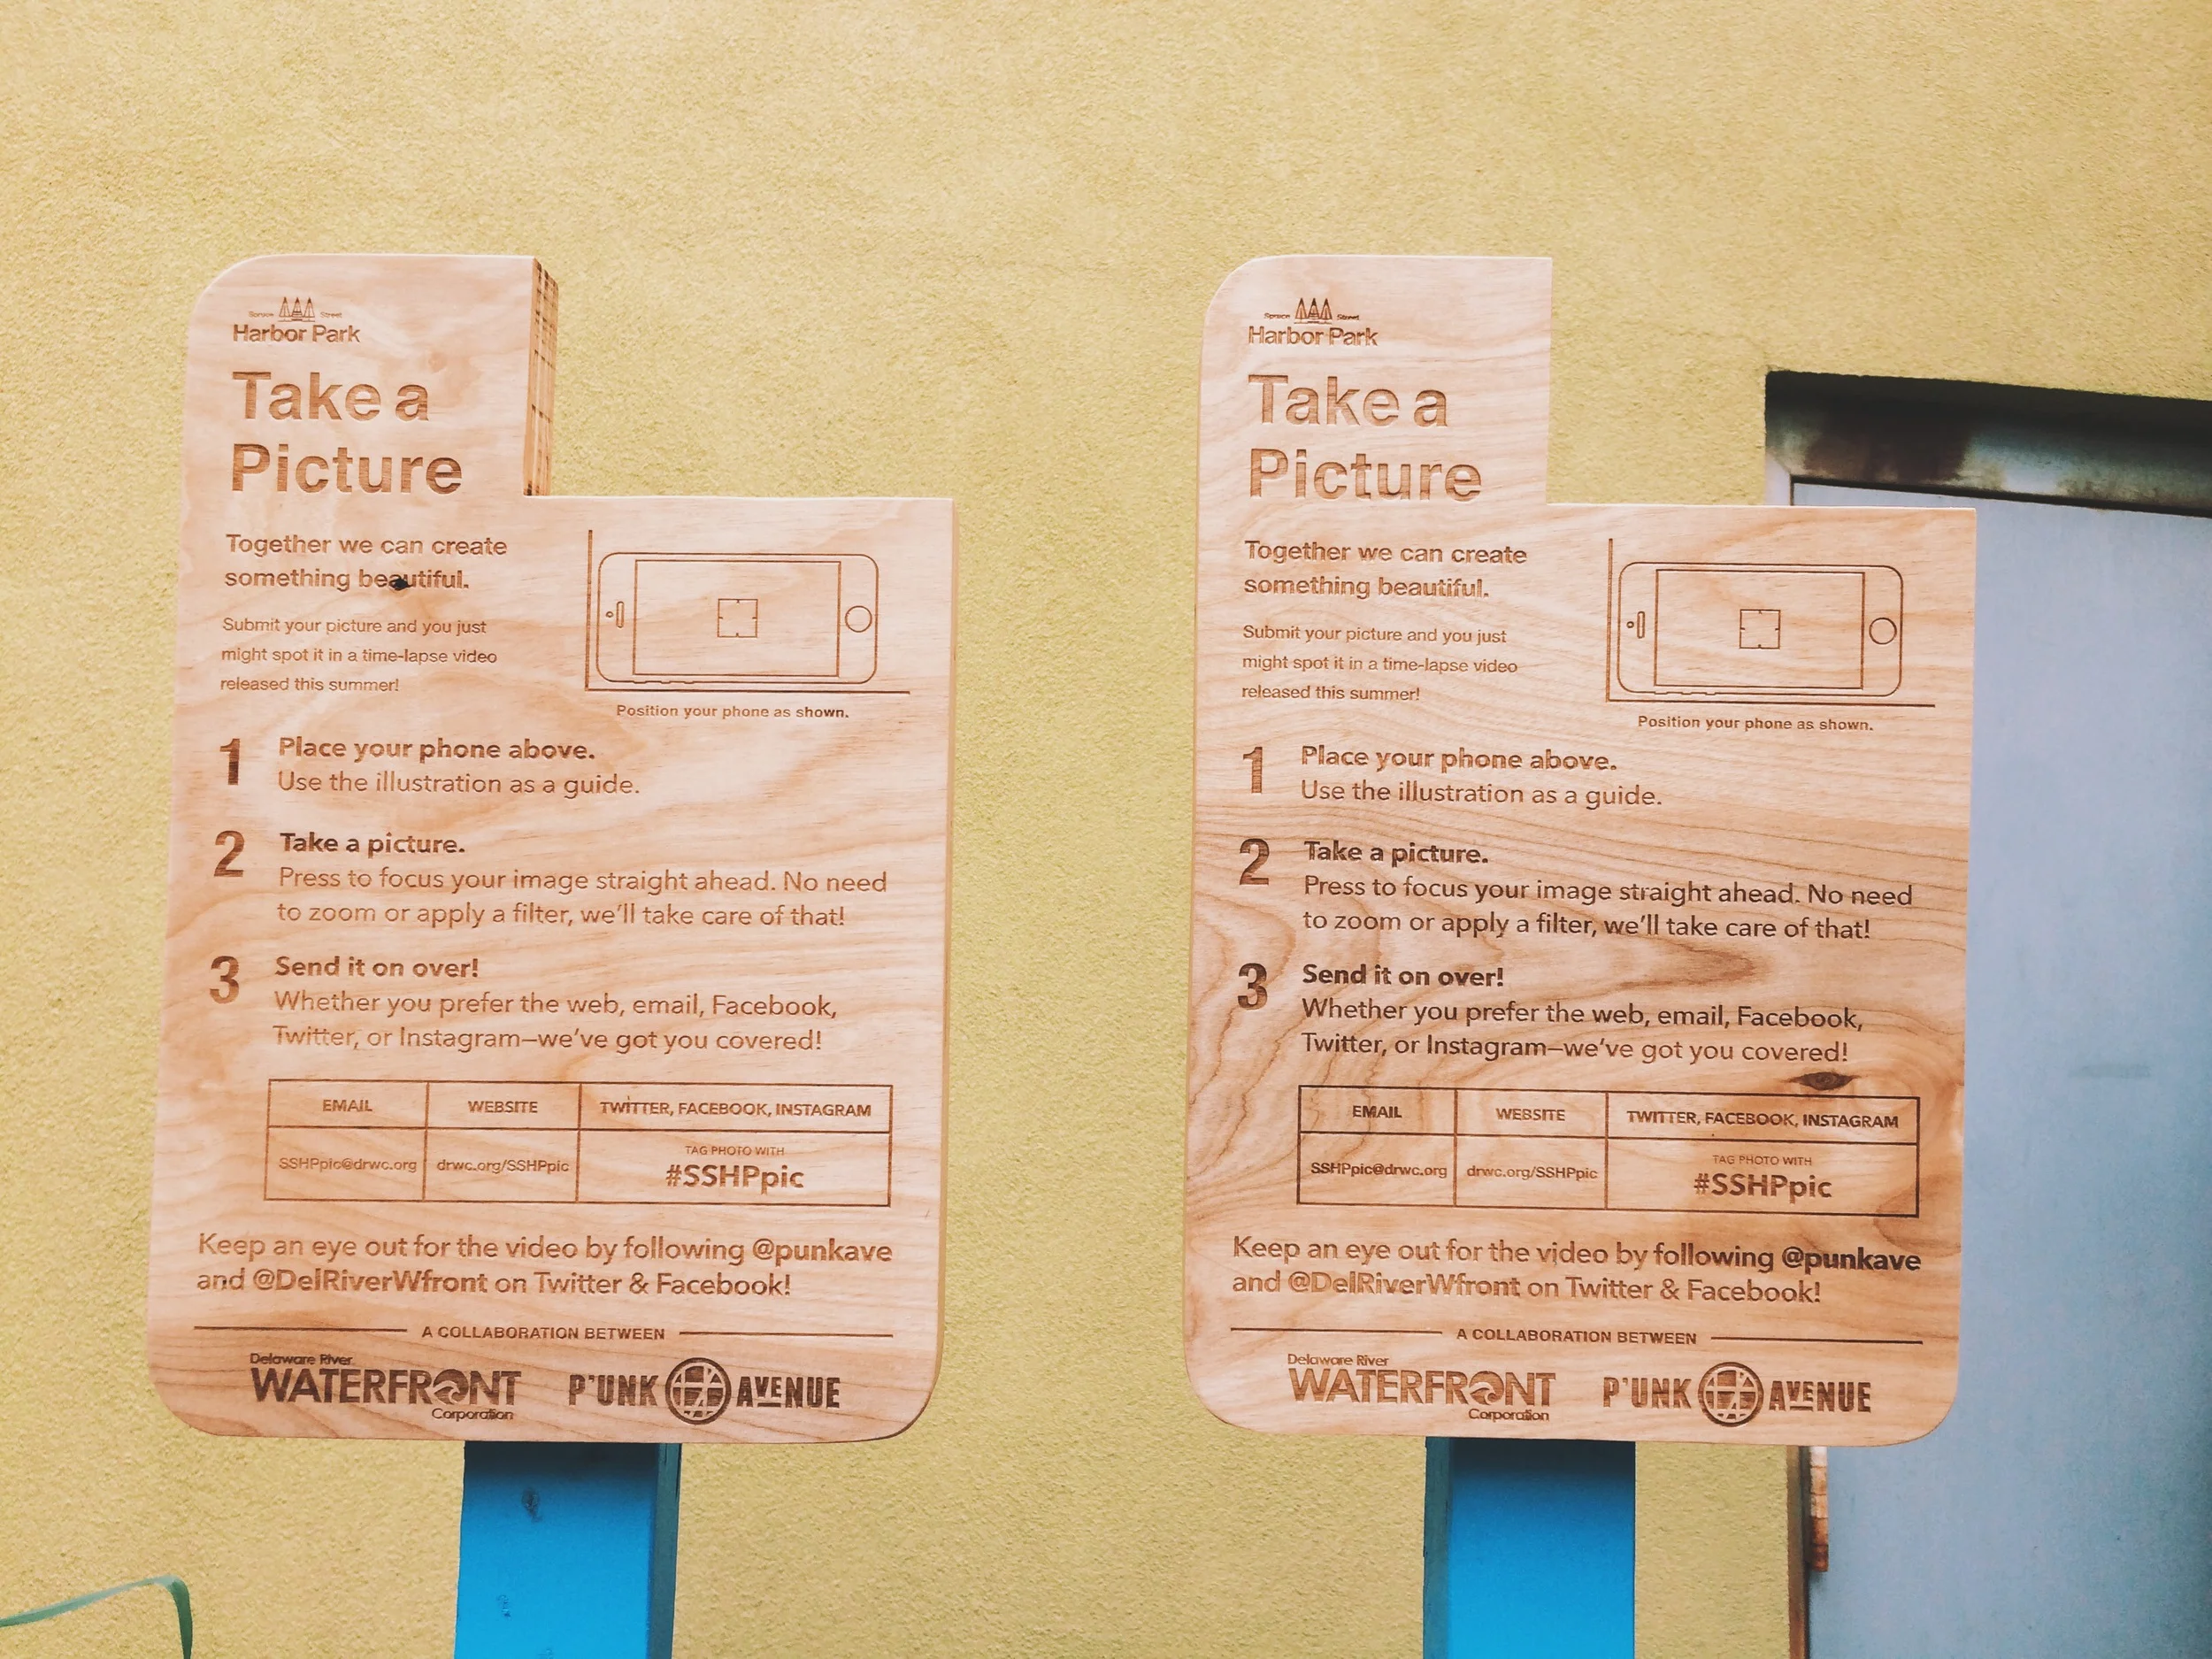 Spruce Street
Harbor Park
Take a
Picture
Together we can create
something beautiful.
Submit your picture and you just
might spot it in a time-lapse video
released this summer!
Position your phone as shown.
1 Place your phone above.
Use the illustration as a guide.
2 Take a picture.
Press to focus your image straight ahead. No need
to zoom or apply a filter, we'll take care of that!
3 Send it on over!
Whether you prefer the web, email, Facebook,
Twitter, or Instagram—we've got you covered!
EMAIL WEBSITE TWITTER, FACEBOOK, INSTAGRAM
TAG PHOTO WITH
SSHPpic@drwc.org drwc.org/SSHPpic #SSHPpic
Keep an eye out for the video by following @punkave
and @DelRiverWfront on Twitter & Facebook!
A COLLABORATION BETWEEN
Delaware River
WATERFRONT P'UNK AVENUE
Corporation
Spruce Street
Harbor Park
Take a
Picture
Together we can create
something beautiful.
Submit your picture and you just
might spot it in a time-lapse video
released this summer!
Position your phone as shown.
1 Place your phone above.
Use the illustration as a guide.
2 Take a picture.
Press to focus your image straight ahead. No need
to zoom or apply a filter, we'll take care of that!
3 Send it on over!
Whether you prefer the web, email, Facebook,
Twitter, or Instagram—we've got you covered!
EMAIL WEBSITE TWITTER, FACEBOOK, INSTAGRAM
TAG PHOTO WITH
SSHPpic@drwc.org drwc.org/SSHPpic #SSHPpic
Keep an eye out for the video by following @punkave
and @DelRiverWfront on Twitter & Facebook!
A COLLABORATION BETWEEN
Delaware River
WATERFRONT P'UNK AVENUE
Corporation